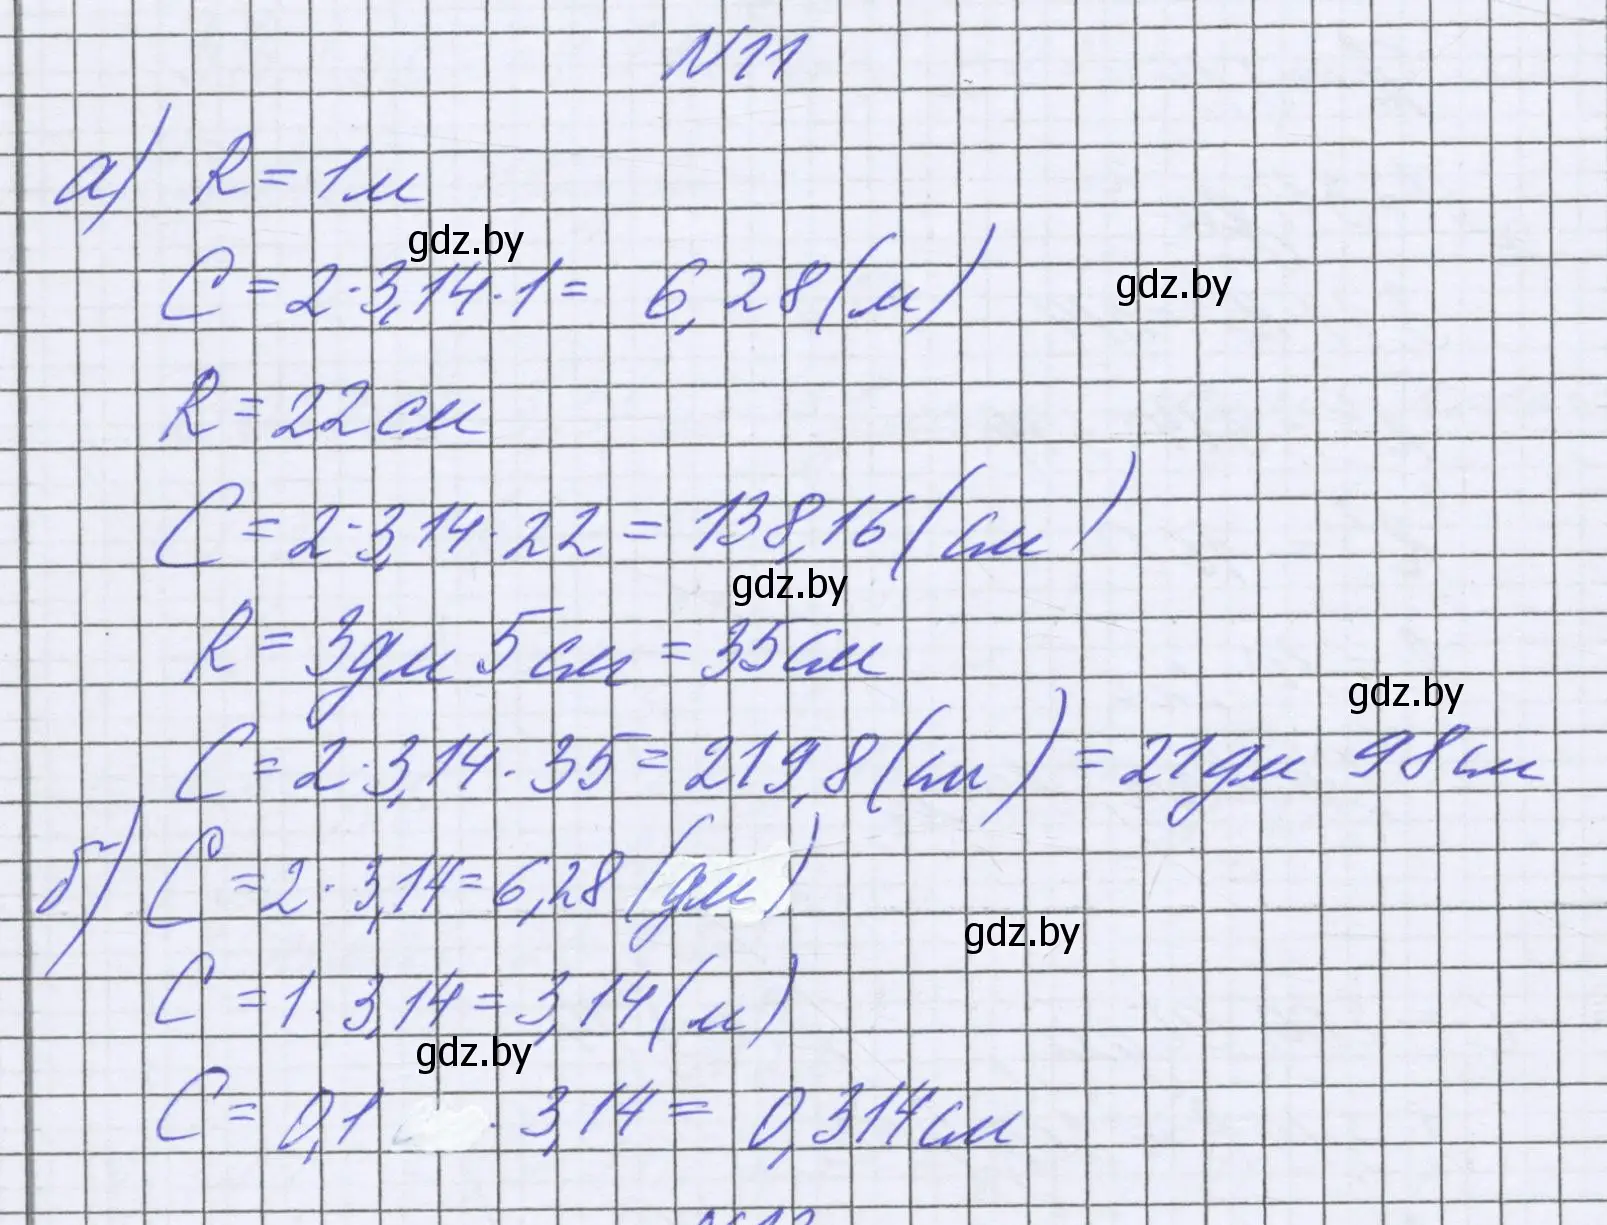 N11
а) R = 1м
gdz.by
C = 2·3,14·1 = 6,28(м)
gdz.by
R = 22см
C = 2·3,14·22 = 138,16(см)
gdz.by
R = 3дм 5см = 35см
gdz.by
C = 2·3,14·35 = 219,8(см) = 21дм 98см
б) C = 2·3,14 = 6,28(дм)
gdz.by
C = 1·3,14 = 3,14(м)
gdz.by
C = 0,1 · 3,14 = 0,314см